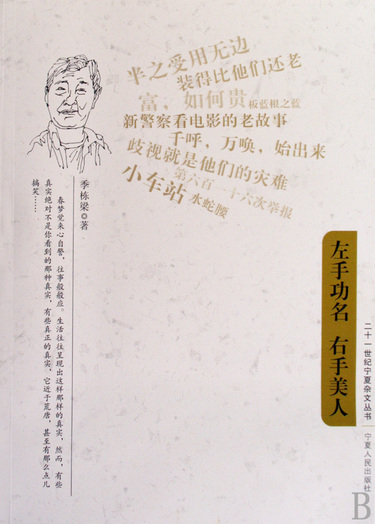 半之受用无边
装得比他们还老
富，如何贵 板蓝根之蓝
新警察看电影的老故事
千呼，万唤，始出来
歧视就是他们的灾难
第六百一十六次举报
小车站 水蛇腰
季栋梁 著
春梦觉来心自警，往事般般应。生活往往呈现出这样那样的真实，然而，有些
真实绝对不是你看到的那种真实，有些真正的真实，它近于荒唐，甚至有那么点儿
搞笑……
左手功名 右手美人
二十一世纪宁夏杂文丛书
宁夏人民出版社
B